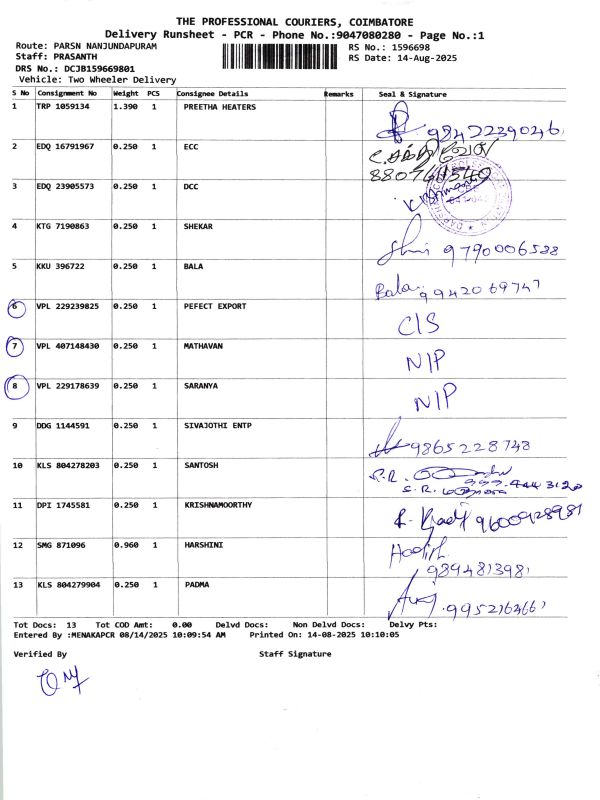 THE PROFESSIONAL COURIERS, COIMBATORE
Delivery Runsheet - PCR - Phone No.:9047080280 - Page No.:1
Route: PARSN NANJUNDAPURAM
RS No.: 1596698
Staff: PRASANTH
RS Date: 14-Aug-2025
DRS No.: DCJB159669801
Vehicle: Two Wheeler Delivery
S No Consignment No Weight PCS Consignee Details Remarks Seal & Signature
1 TRP 1059134 1.390 1 PREETHA HEATERS 9842239046
2 EDQ 16791967 0.250 1 ECC
3 EDQ 23905573 0.250 1 DCC
4 KTG 7190863 0.250 1 SHEKAR 9790006538
5 KKU 396722 0.250 1 BALA Bala 9942069747
6 VPL 229239825 0.250 1 PEFECT EXPORT C/S
7 VPL 407148430 0.250 1 MATHAVAN N/P
8 VPL 229178639 0.250 1 SARANYA N/P
9 DDG 1144591 0.250 1 SIVAJOTHI ENTP 9865228748
10 KLS 804278203 0.250 1 SANTOSH
11 DPI 1745581 0.250 1 KRISHNAMOORTHY
12 SMG 871096 0.960 1 HARSHINI 9894813981
13 KLS 804279904 0.250 1 PADMA
Tot Docs: 13 Tot COD Amt: 0.00 Delvd Docs: Non Delvd Docs: Delvy Pts:
Entered By :MENAKAPCR 08/14/2025 10:09:54 AM Printed On: 14-08-2025 10:10:05
Verified By Staff Signature